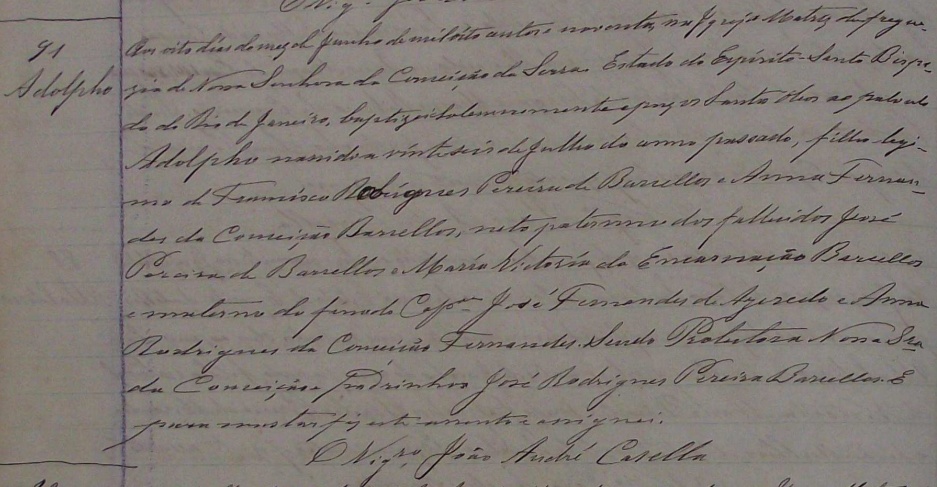 O Vigro
91
Adolpho
Aos oito dias do mez de Junho de mil oito centos e noventa, na Igreja Matriz da fregue-
zia de Nossa Senhora da Conceição da Serra Estado do Espírito-Santo Bispa-
do do Rio de Janeiro, baptizei solemnemente e puz os Santos óleos ao parvulo
Adolpho nascido a vinte seis de Julho do anno passado, filho legi-
mo de Francisco Rodrigues Pereira de Barcellos e Anna Fernan-
des da Conceição Barcellos, neto paterno dos fallecidos José
Pereira de Barcellos e Maria Victória da Encarnação Barcellos
e materno do finado Capm José Fernandes de Azeredo e Anna
Rodrigues da Conceição Fernandes. Sendo Protectora Nossa Sra
da Conceição e padrinho José Rodrigues Pereira Barcellos. E
para constar fiz este assento e assignei.
O Vigro João André Casella